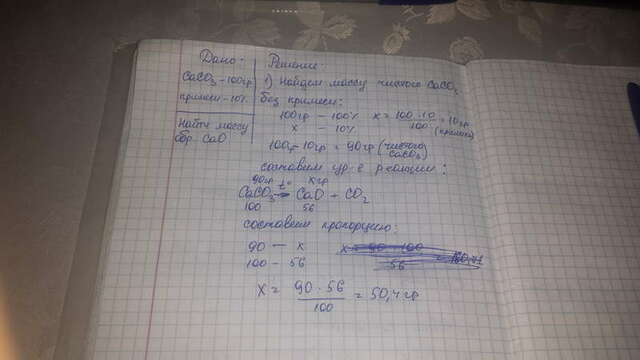 Дано:
CaCO3 - 100гр
примеси - 10%
Найти массу
обр. CaO
Решение:
1) Найдем массу чистого CaCO3
без примеси:
100гр - 100% x = 100 · 10 / 100 = 10гр
x - 10% (примеси)
100гр - 10гр = 90гр (чистого
CaCO3)
составим ур-е реакции:
90гр xгр
CaCO3 t° → CaO + CO2
100 56
составим пропорцию:
90 — x x = 90 · 100 / 56
100 - 56
x = 90 · 56 / 100 = 50,4 гр